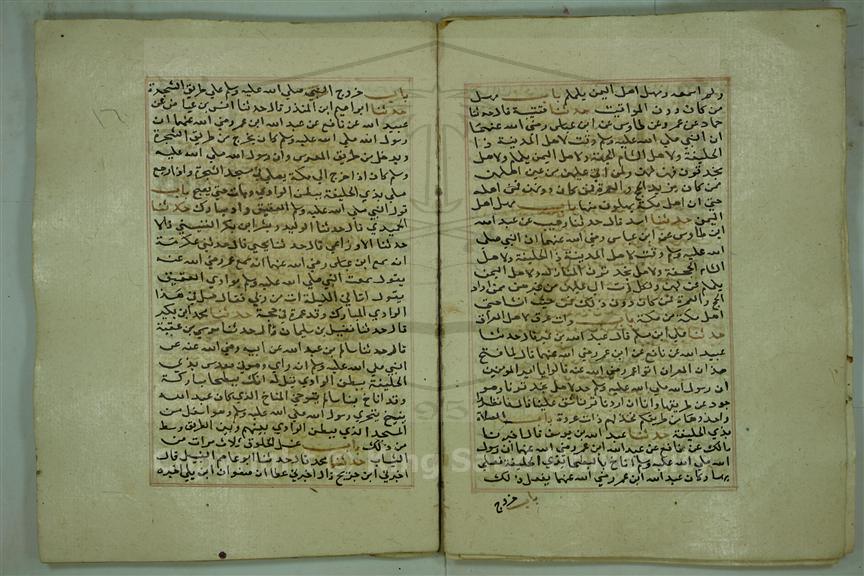 ولم اسمعه ومهل اهل اليمن يلملم باب مهل
من كان دون المواقيت حدثنا قتيبة قال حدثنا
حماد عن عمرو عن طاوس عن ابن عباس رضي الله عنهما
ان النبي صلى الله عليه وسلم وقت لاهل المدينة ذا
الحليفة ولاهل الشام الجحفة ولاهل اليمن يلملم ولاهل
نجد قرن فهن لهن ولمن اتى عليهن من غير اهلهن
ممن كان يريد الحج والعمرة فمن كان دونهن فمن اهله
حتى ان اهل مكة يهلون منها باب مهل اهل
اليمن حدثنا اسد قال حدثنا وهيب عن عبد الله
ابن طاوس عن ابن عباس رضي الله عنهما ان النبي صلى
الله عليه وسلم وقت لاهل المدينة ذا الحليفة ولاهل
الشام الجحفة ولاهل نجد قرن المنازل ولاهل اليمن
يلملم هن لهن ولكل آت اتى عليهن من غيرهن ممن اراد
الحج والعمرة فمن كان دون ذلك فمن حيث انشا حتى
اهل مكة من مكة باب ذات عرق لاهل العراق
حدثنا علي ابن مسلم قال عبد الله بن نمير قال حدثنا
عبيد الله عن نافع عن ابن عمر رضي الله عنهما قال لما فتح
هذان المصران اتوا عمر رضي الله عنه قالوا يا امير المومنين
ان رسول الله صلى الله عليه وسلم حد لاهل نجد قرنا وهو
جور عن طريقنا وانا ان اردنا قرنا شق علينا قال فانظروا
واحذوها من طريقكم فحد لهم ذات عرق باب الصلاة
بذي الحليفة حدثنا عبد الله بن يوسف قال اخبرنا
مالك عن نافع عن عبد الله ابن عمر رضي الله عنهما ان رسول
الله صلى الله عليه وسلم اناخ بالبطحاء بذي الحليفة فصلى
بها وكان عبد الله ابن عمر رضي الله عنهما يفعل ذلك
باب خروج
باب خروج النبي صلى الله عليه وسلم على طريق الشجرة
حدثنا ابراهيم ابن المنذر قال حدثنا انس بن عياض عن
عبيد الله عن نافع عن عبد الله ابن عمر رضي الله عنهما ان
رسول الله صلى الله عليه وسلم كان يخرج من طريق الشجرة
ويدخل من طريق المعرس وان رسول الله صلى الله عليه
وسلم كان اذا خرج الى مكة يصلي في مسجد الشجرة واذا رجع
صلى بذي الحليفة ببطن الوادي وبات حتى يصبح باب
قول النبي صلى الله عليه وسلم العقيق واد مبارك حدثنا
الحميدي قال حدثنا الوليد وبشر ابن بكر التنيسي قالا
حدثنا الاوزاعي قال حدثنا يحيى قال حدثني عكرمة
انه سمع ابن عباس رضي الله عنهما انه سمع عمر رضي الله عنه
يقول سمعت النبي صلى الله عليه وسلم بوادي العقيق
يقول اتاني الليلة آت من ربي فقال صل في هذا
الوادي المبارك وقل عمرة في حجة حدثنا محمد ابن ابي بكر
قال حدثنا فضيل بن سليمان قال حدثنا موسى بن عقبة
قال حدثنا سالم بن عبد الله عن ابيه رضي الله عنه عن
النبي صلى الله عليه وسلم انه راى وهو في معرس بذي
الحليفة ببطن الوادي قيل له انك ببطحاء مباركة
وقد اناخ بنا سالم يتوخى المناخ الذي كان عبد الله
ينيخ يتحرى رسول الله صلى الله عليه وسلم وهو اسفل من
المسجد الذي ببطن الوادي بينهم وبين الطريق وسط
من ذلك باب غسل الخلوق ثلاث مرات من
الثياب حدثنا محمد قال حدثنا ابو عاصم النبيل قال
اخبرني ابن جريج قال اخبرني عطا ان صفوان ابن يعلى اخبره